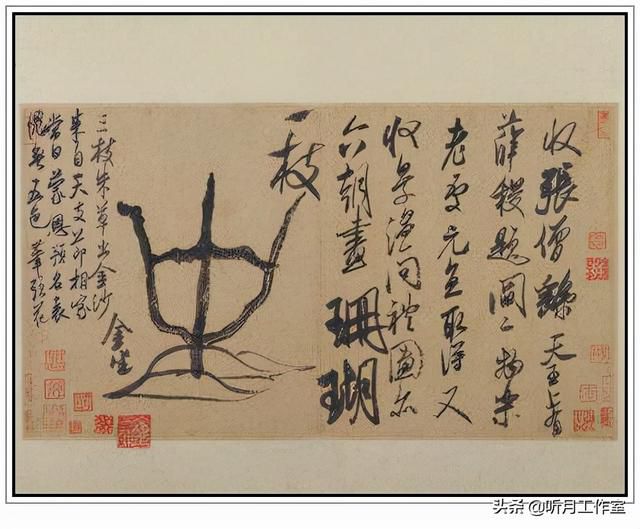 收張僧繇天王上有
薛稷題閻二物樂
老處元直取得又
收景溫問禮圖亦
六朝畫珊瑚
一枝
金坐
三枝朱草出金沙
來自天支節相家
當日蒙恩預名表
愧無五色筆頭花
头条 @听月工作室